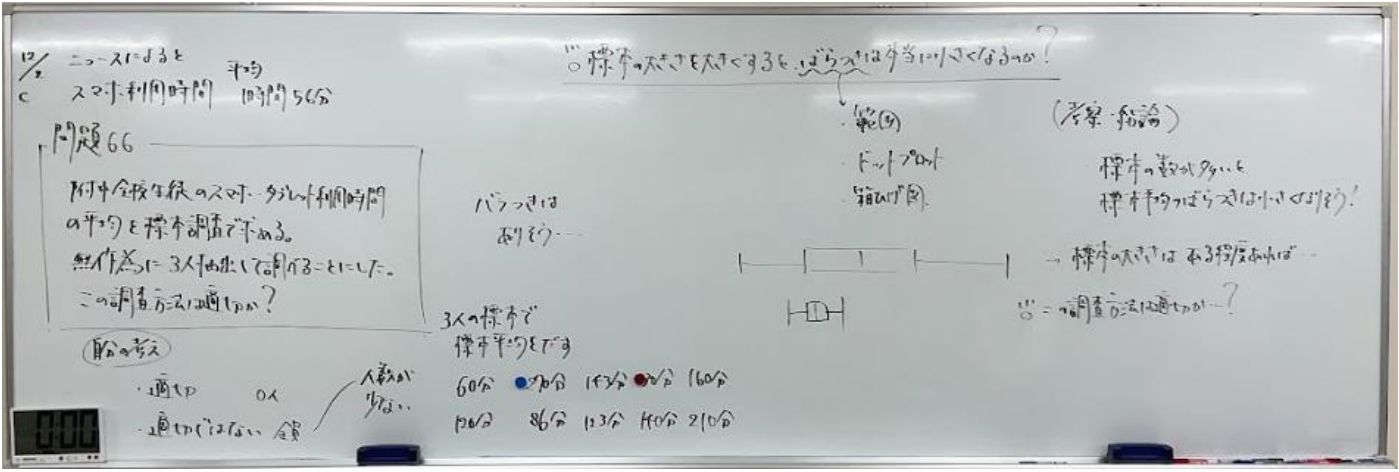 12/2 ニュースによると
C スマホ利用時間 平均 1時間56分
問題66
附中全校生徒のスマホ・タブレット利用時間
の平均を標本調査で求める。
無作為に3人抽出して調べることにした。
この調査方法は適切か?
自分の考え
・適切 0人
・適切ではない 全員
人数が
少ない
バラつきは
ありそう…
3人の標本で
標本平均をだす
60分 90分 143分 160分
120分 86分 123分 140分 210分
標本の大きさを大きくすると、ばらつきは本当に小さくなるのか?
・範囲
・ドットプロット
・箱ひげ図
(考察・結論)
・標本の数が多いと
標本平均のばらつきは小さくなりそう!
→標本の大きさはある程度あれば…
この調査方法は適切か…?
0:00